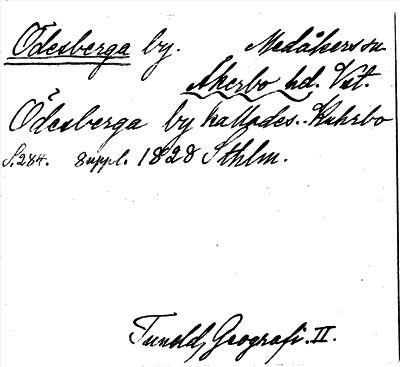 Ödesberga by. Medåkers sn.
Åkerbo hd. Vst.
Ödesberga by kallades. Kuhrbo
S. 284. 8 uppl. 1828 Sthlm.
Tuneld, Geografi. II.